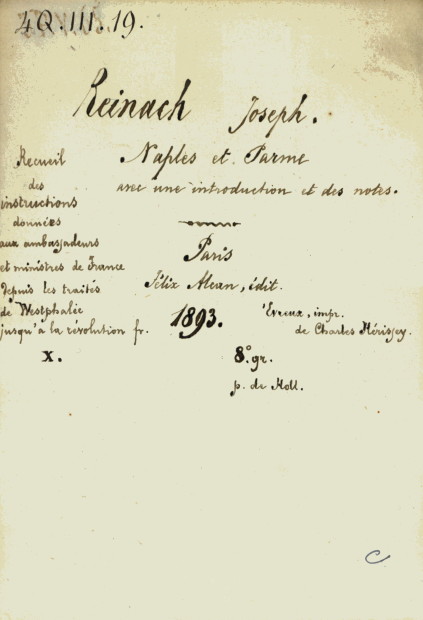 4Q.III.19.
Reinach Joseph.
Naples et Parme
avec une introduction et des notes.
Recueil
des
instructions
données
aux ambassadeurs
et ministres de France
depuis les traités
de Westphalie
jusqu'à la révolution fr.
X.
Paris
Félix Alcan, édit.
1893.
Evreux, impr.
de Charles Hérissey.
8° gr.
p. de Holl.
C